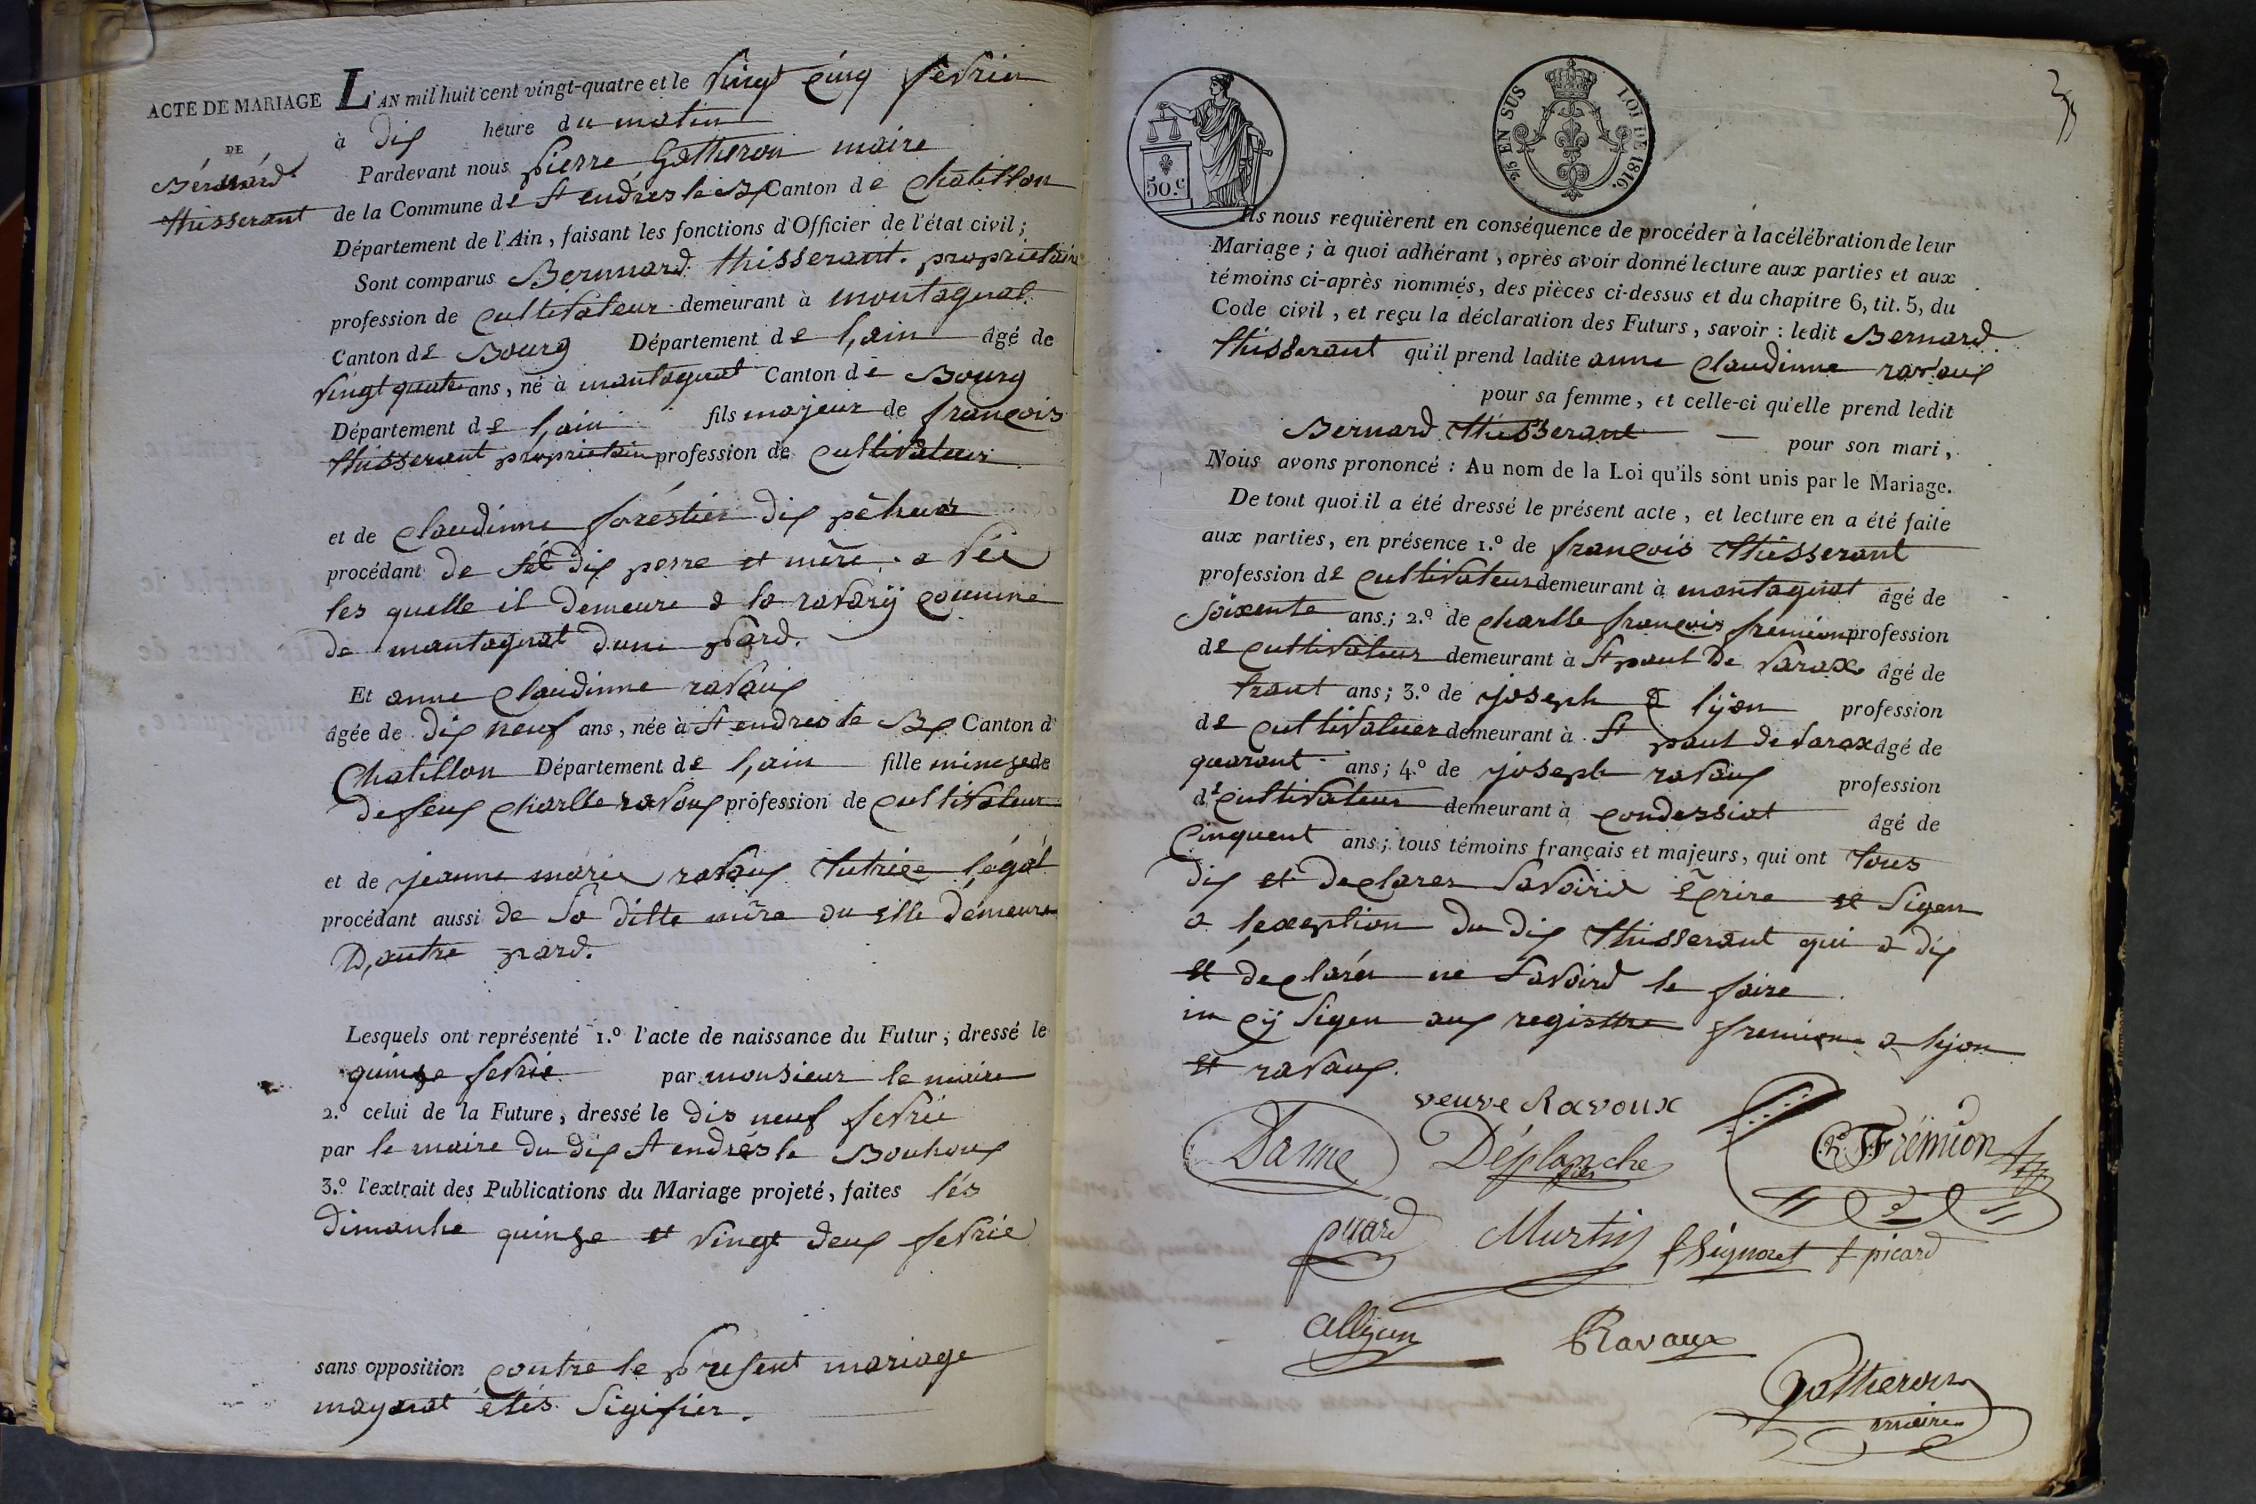 ACTE DE MARIAGE
DE
Bérnárd
thisserant
L'AN mil huit cent vingt-quatre et le vingt cinq fevrier
à dix heure du matin
Pardevant nous pierre Gatheron maire
de la Commune de St endres le Bx Canton de Chatillon
Département de l'Ain, faisant les fonctions d'Officier de l'état civil;
Sont comparus Bernnard thisserant. proprietaire
profession de cultivateur demeurant à montagnat
Canton de Bourg Département de l,ain âgé de
vingt quatre ans, né à montagnat Canton de Bourg
Département de l,ain fils majeur de françois
thisserant proprietaire profession de cultivateur
et de claudinne foréstier dix
procédant de dix perre et mère. a vec
les quelle il demeure a la ravary
de montagnat dune pard.
Et anne claudinne ravaux
âgée de dix neuf ans, née à St endres le Bx Canton d
Chatillon Département de l,ain fille de
de feux charlle ravoux profession de cultivateur
et de jeanne marie ravaux tutrice légal
procédant aussi de sa ditte mère ou elle démeure
D,autre pard.
Lesquels ont représenté 1.º l'acte de naissance du Futur, dressé le
quinze fevrie par monsieur le maire
2.º celui de la Future, dressé le dis neuf fevrie
par le maire du dix St endrés le Bouhoux
3.º l'extrait des Publications du Mariage projeté, faites lés
dimanhe quinze et vingt deux fevrie
sans opposition contre le présent mariage
mayant étés sigifier.
50.c
2/5 EN SUS LOI DE 1816.
Ils nous requièrent en conséquence de procéder à la célébration de leur
Mariage; à quoi adhérant, après avoir donné lecture aux parties et aux
témoins ci-après nommés, des pièces ci-dessus et du chapitre 6, tit. 5, du
Code civil, et reçu la déclaration des Futurs, savoir: ledit Bernard
thisserant qu'il prend ladite anne claudinne ravaux
pour sa femme, et celle-ci qu'elle prend ledit
Bernard thisserant — pour son mari,
Nous avons prononcé: Au nom de la Loi qu'ils sont unis par le Mariage.
De tout quoi il a été dressé le présent acte, et lecture en a été faite
aux parties, en présence 1.º de françois thisserant
profession de cultivateur demeurant à montagnat âgé de
soixente ans; 2.º de charlle françois fremion profession
de cultivateur demeurant à St paul de varax âgé de
trant ans; 3.º de joseph a lÿon profession
de cultivatuer demeurant à St paul de varax âgé de
quarant ans; 4.º de joseph ravaux profession
de cultivateur demeurant à condessiat âgé de
cinquent ans; tous témoins français et majeurs, qui ont tous
dix et declarer savoird ecrire et sigen
a l,exeption du dix thisserant qui a dix
et declarér ne savoird le faire
cÿ sigen aux registtre fremion a lyon
et ravaux.
veuve Ravoux
Danne Déplanche Fremion
picard Murtin Signoret f picard
allyon Ravaux
gattheron
maire